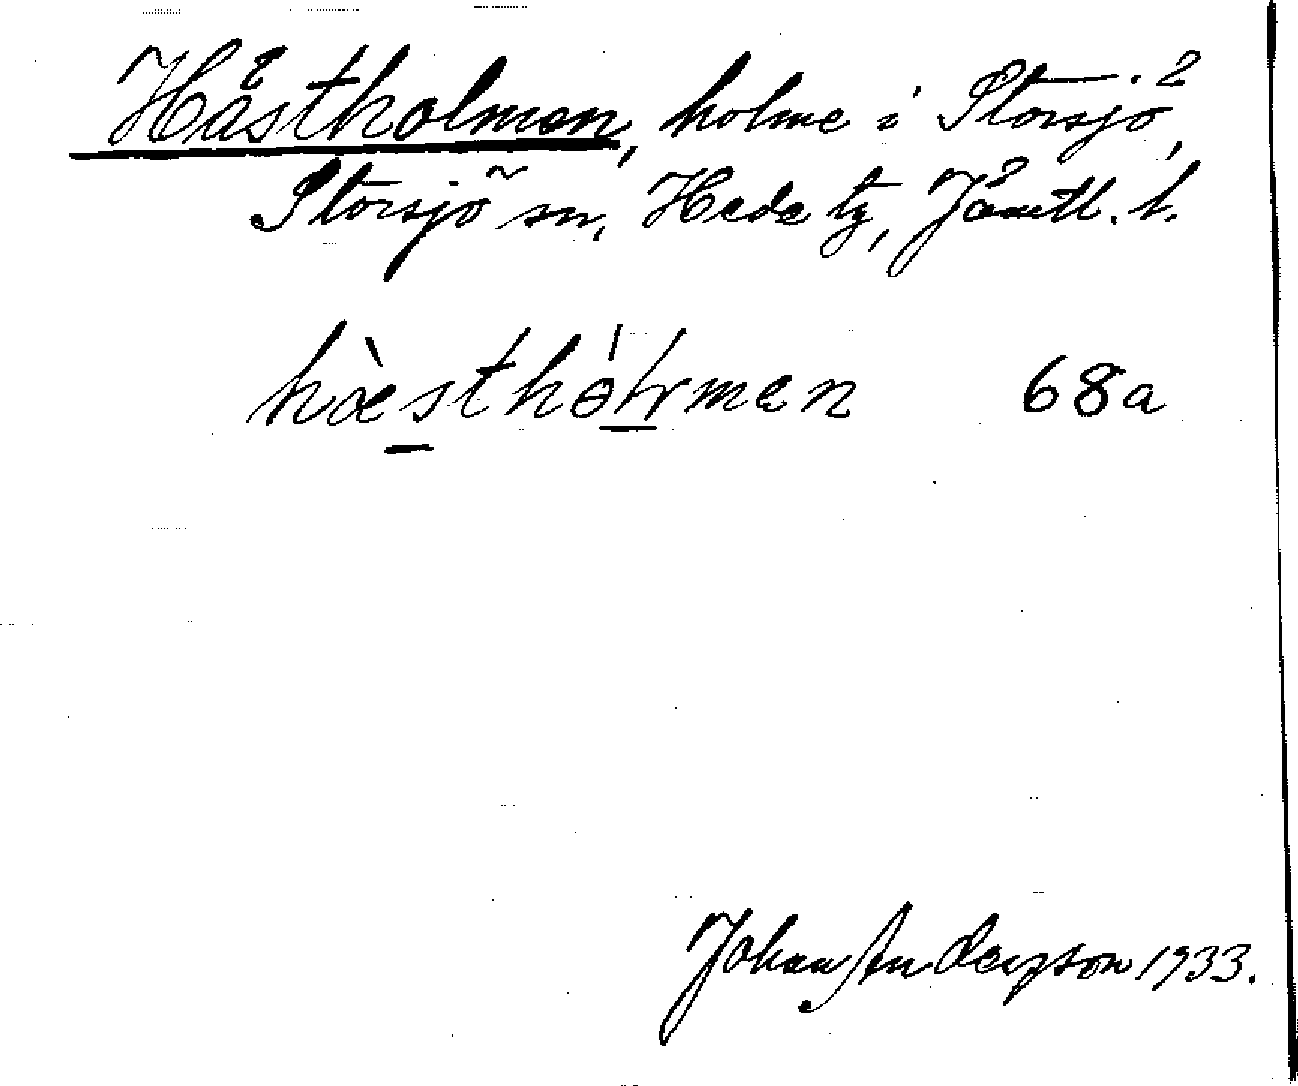 Hästholmen, holme i Storsjö,
Storsjö sn, Hede tg, Jämtl. l.
hæsthólmen 68a
Johan Anderzson 1933.